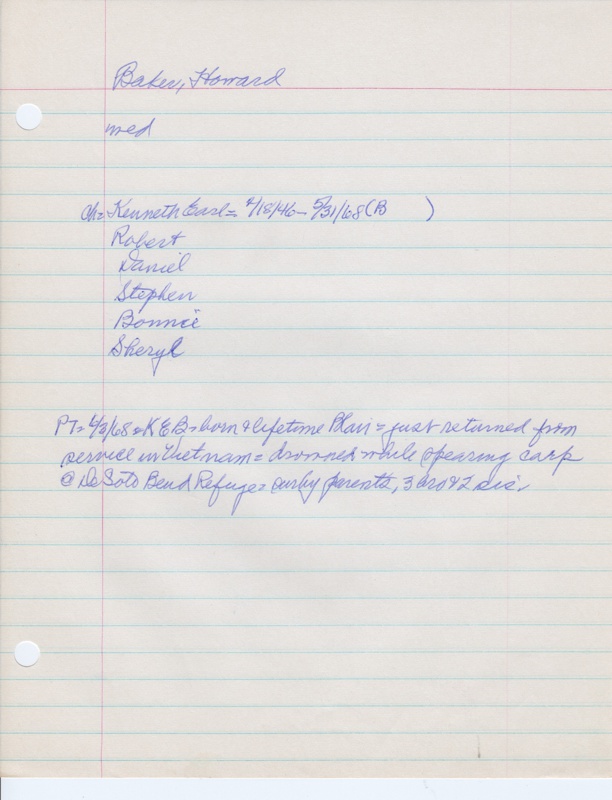 Baker, Howard
med
ch= Kenneth Earl= 4/18/46- 5/31/68 (B )
Robert
Daniel
Stephen
Bonnie
Sheryl
PT= 6/3/68= KEB= born & lifetime Blair= just returned from
service in Vietnam= drowned while spearing carp
@ DeSoto Bend Refuge= surby parents, 3 bro & 2 sis.